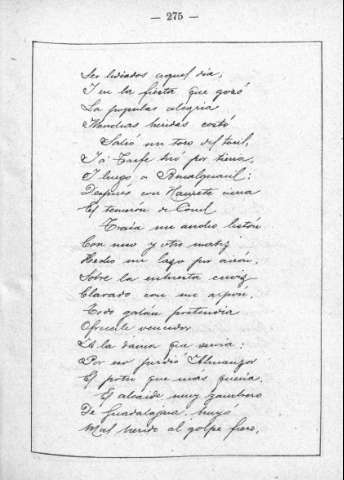 — 275 —
Ser lidiados aquel dia,
Y en la fiesta que gozó
La popular alegria
Muchas heridas costó.
Salió un toro del toril,
Y á Tarfe tiró por tierra,
Y luego a Benalguacil;
Después con Hamete cierra
El temerón de Conil
Traía un ancho listón
Con uno y otro matiz
Hecho un lazo por airón,
Sobre la inhiesta cerviz
Clavado con un arpón.
Todo galán pretendia
Ofrecerle vencedor
Á la dama que servia:
Por eso perdió Almanzor
El potro que más queria.
El alcaide muy zambrero
De Guadalajara, huyó
Mal herido al golpe fiero,